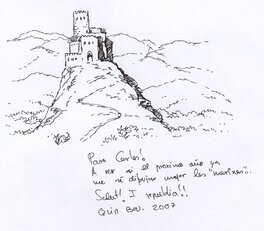 Para Carlos!
A ver si el proximo año ya
me sé dibujar mejor les "marines"...
Salut! I república!!
Quim Bou. 2007